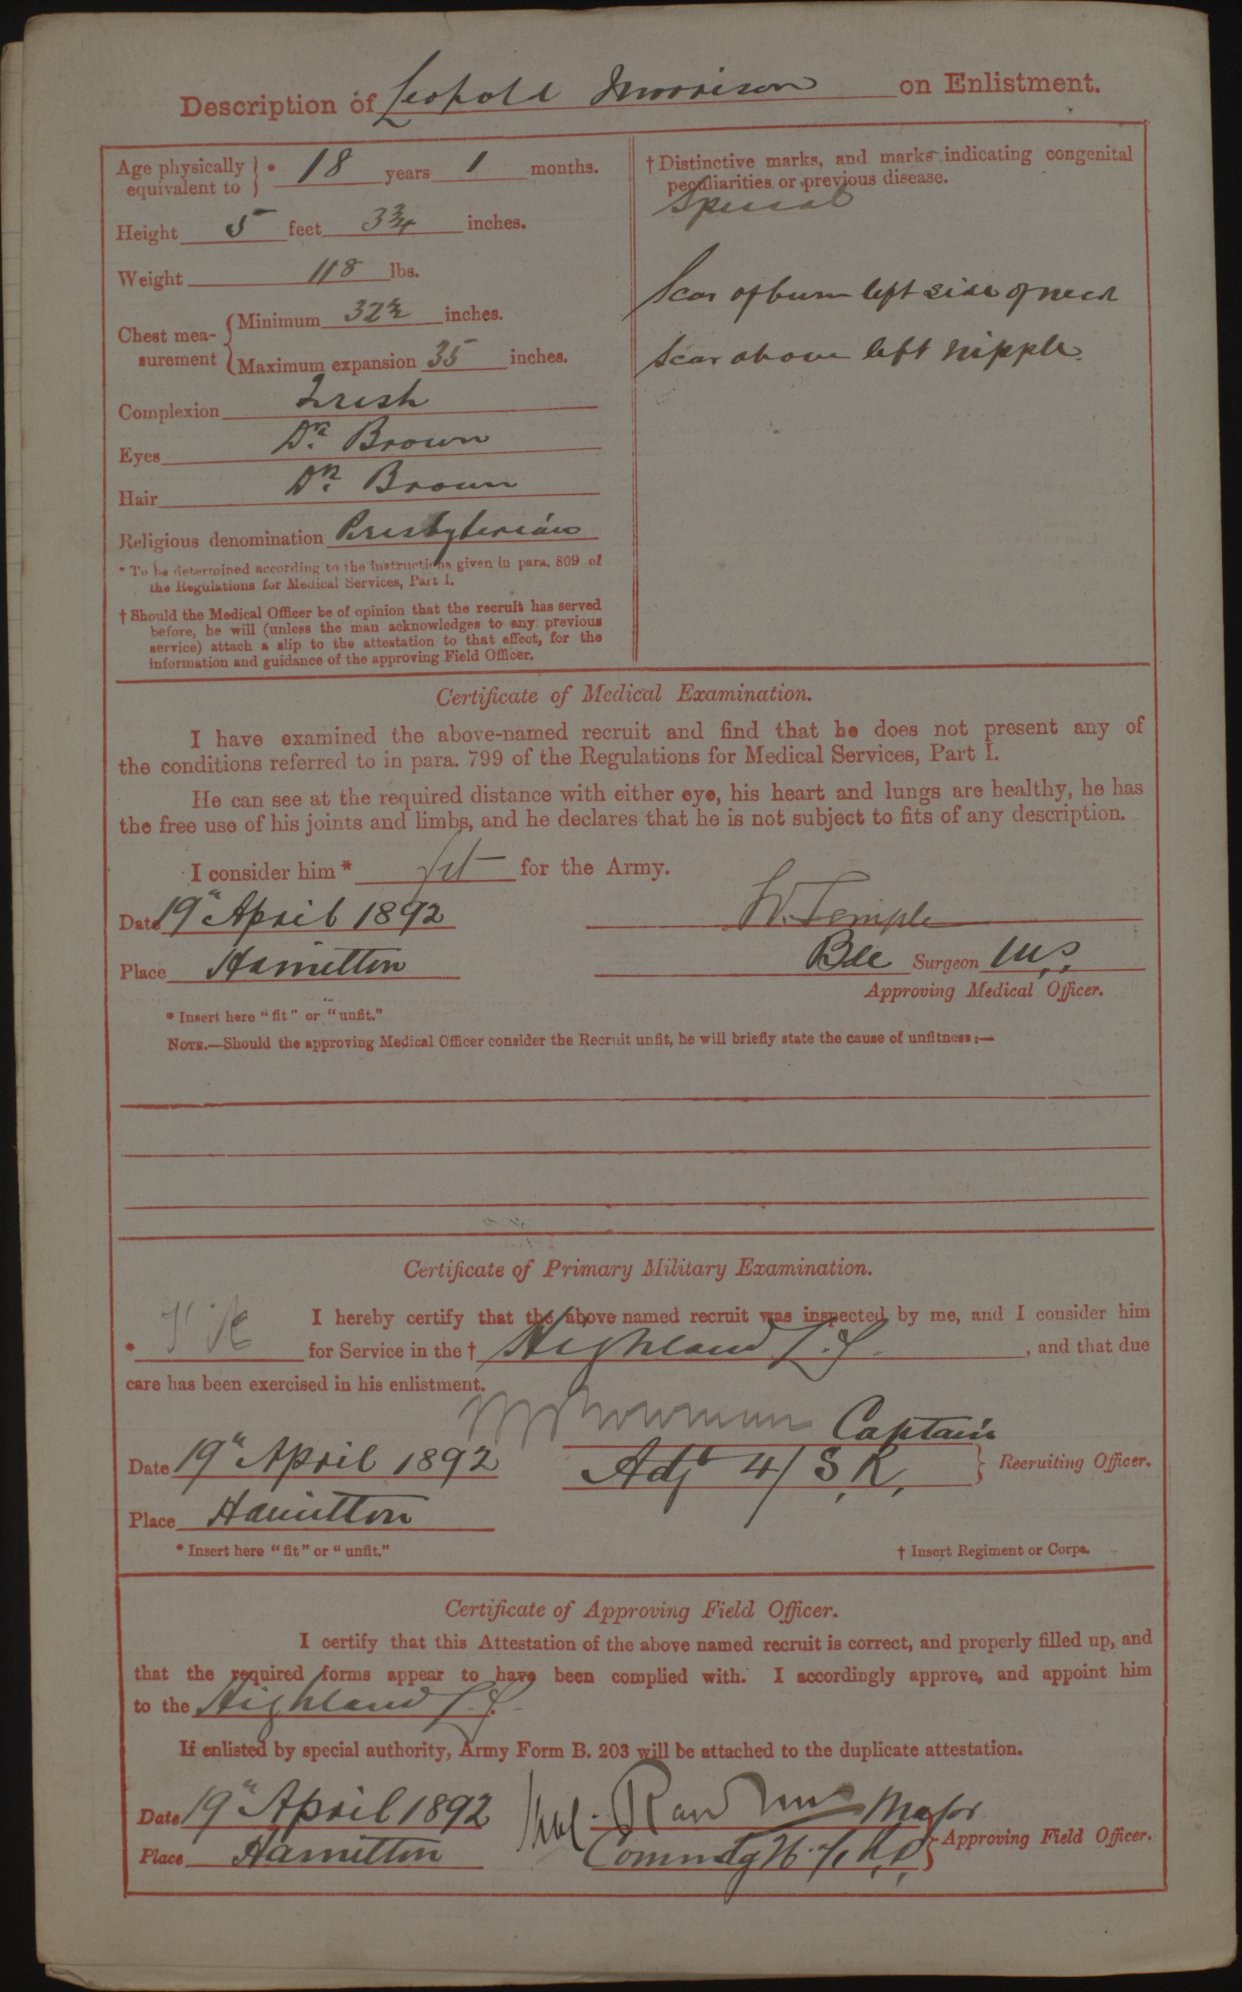 Description of Leopold Morrison on Enlistment.
Age physically equivalent to * 18 years 1 months.
Height 5 feet 3¾ inches.
Weight 118 lbs.
Chest measurement
Minimum 32½ inches.
Maximum expansion 35 inches.
Complexion Fresh
Eyes Dk. Brown
Hair Dk. Brown
Religious denomination Presbyterian
* To be determined according to the Instructions given in para. 809 of
the Regulations for Medical Services, Part I.
† Should the Medical Officer be of opinion that the recruit has served
before, he will (unless the man acknowledges to any previous
service) attach a slip to the attestation to that effect, for the
information and guidance of the approving Field Officer.
† Distinctive marks, and marks indicating congenital
peculiarities or previous disease.
Special
Scar of burn left side of neck
Scar above left nipple.
Certificate of Medical Examination.
I have examined the above-named recruit and find that he does not present any of
the conditions referred to in para. 799 of the Regulations for Medical Services, Part I.
He can see at the required distance with either eye, his heart and lungs are healthy, he has
the free use of his joints and limbs, and he declares that he is not subject to fits of any description.
I consider him * fit for the Army.
Date 19th April 1892 W. Temple
Place Hamilton Bde Surgeon M.S.
Approving Medical Officer.
* Insert here "fit" or "unfit."
NOTE.—Should the approving Medical Officer consider the Recruit unfit, he will briefly state the cause of unfitness:—
Certificate of Primary Military Examination.
I hereby certify that the above named recruit was inspected by me, and I consider him
* Fit for Service in the † Highland L.I. , and that due
care has been exercised in his enlistment.
Captain
Date 19th April 1892 Adjt 4/S.R. Recruiting Officer.
Place Hamilton
* Insert here "fit" or "unfit." † Insert Regiment or Corps.
Certificate of Approving Field Officer.
I certify that this Attestation of the above named recruit is correct, and properly filled up, and
that the required forms appear to have been complied with. I accordingly approve, and appoint him
to the Highland L.I.
If enlisted by special authority, Army Form B. 203 will be attached to the duplicate attestation.
Date 19th April 1892 Major
Place Hamilton Commdg Approving Field Officer.